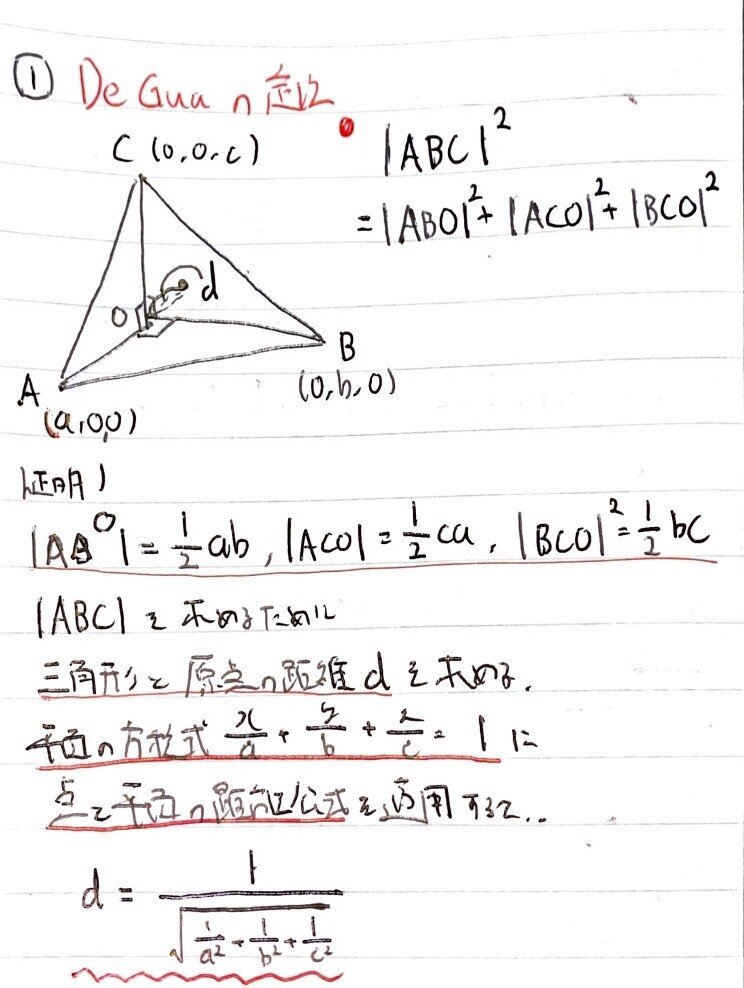 ① De Gua の定理
C (0,0,c)
|ABC|²
= |ABO|² + |ACO|² + |BCO|²
d
O
B
(0,b,0)
A
(a,0,0)
証明)
|ABO| = 1/2 ab, |ACO| = 1/2 ca, |BCO|² = 1/2 bc
|ABC| を求めるために
三角形と原点の距離 d を求める.
平面の方程式 x/a + y/b + z/c = 1 に
点と平面の距離公式を適用すると..
d = 1/√(1/a² + 1/b² + 1/c²)